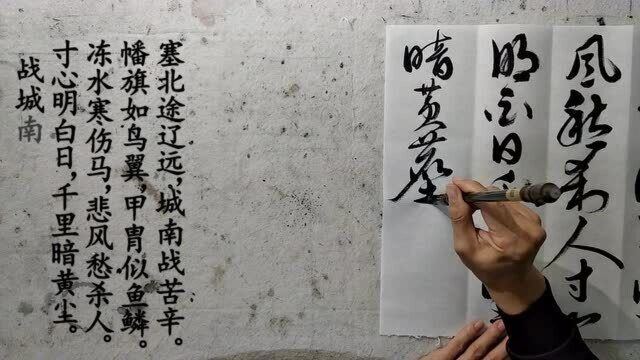 塞北途辽远,城南战苦辛。
幡旗如鸟翼,甲胄似鱼鳞。
冻水寒伤马,悲风愁杀人。
寸心明白日,千里暗黄尘。
战城南
风愁杀人寸
明白日
暗黄塵